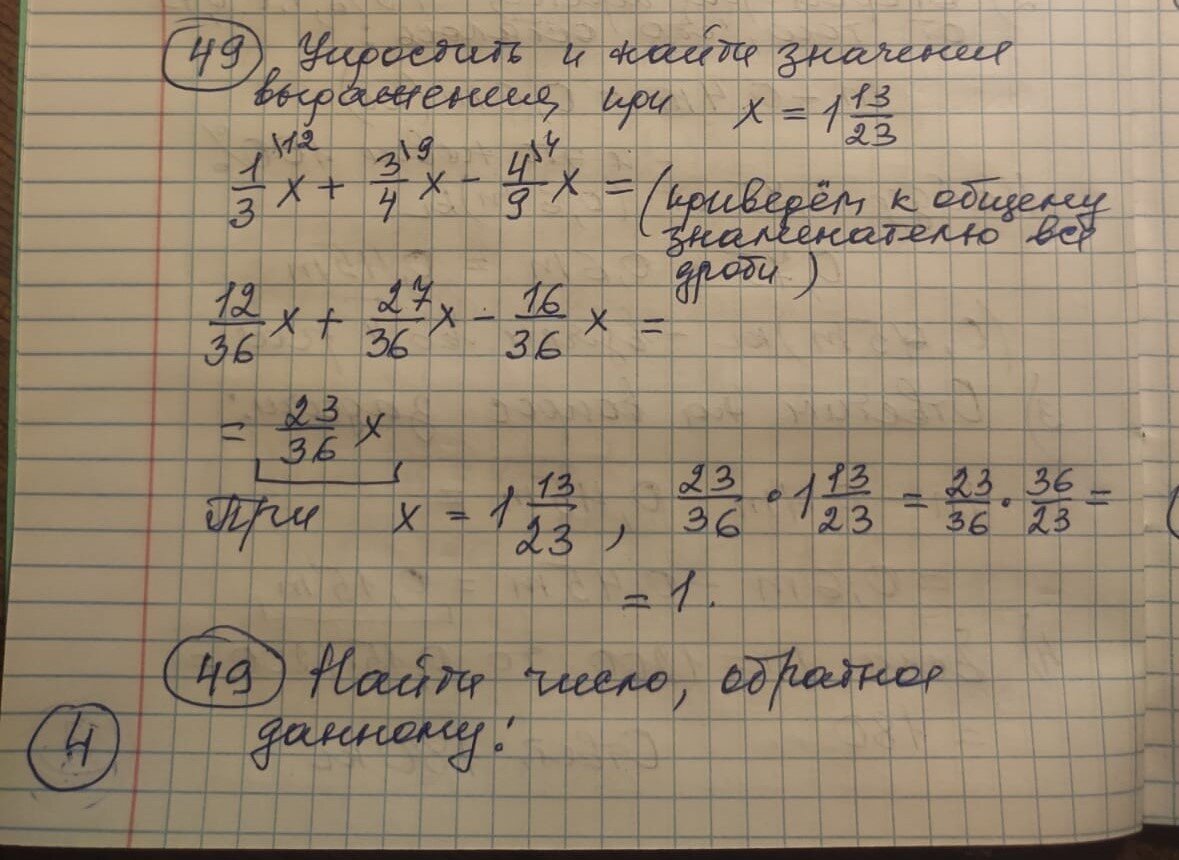 49 Упростить и найти значения
выражения, при x = 1 13/23
1/3 \12 x + 3/4 \9 x - 4/9 \4 x = (приведём к общему
знаменателю все
дроби)
12/36 x + 27/36 x - 16/36 x =
= 23/36 x
При x = 1 13/23, 23/36 · 1 13/23 = 23/36 · 36/23 =
= 1.
49 Найти число, обратное
данному:
4